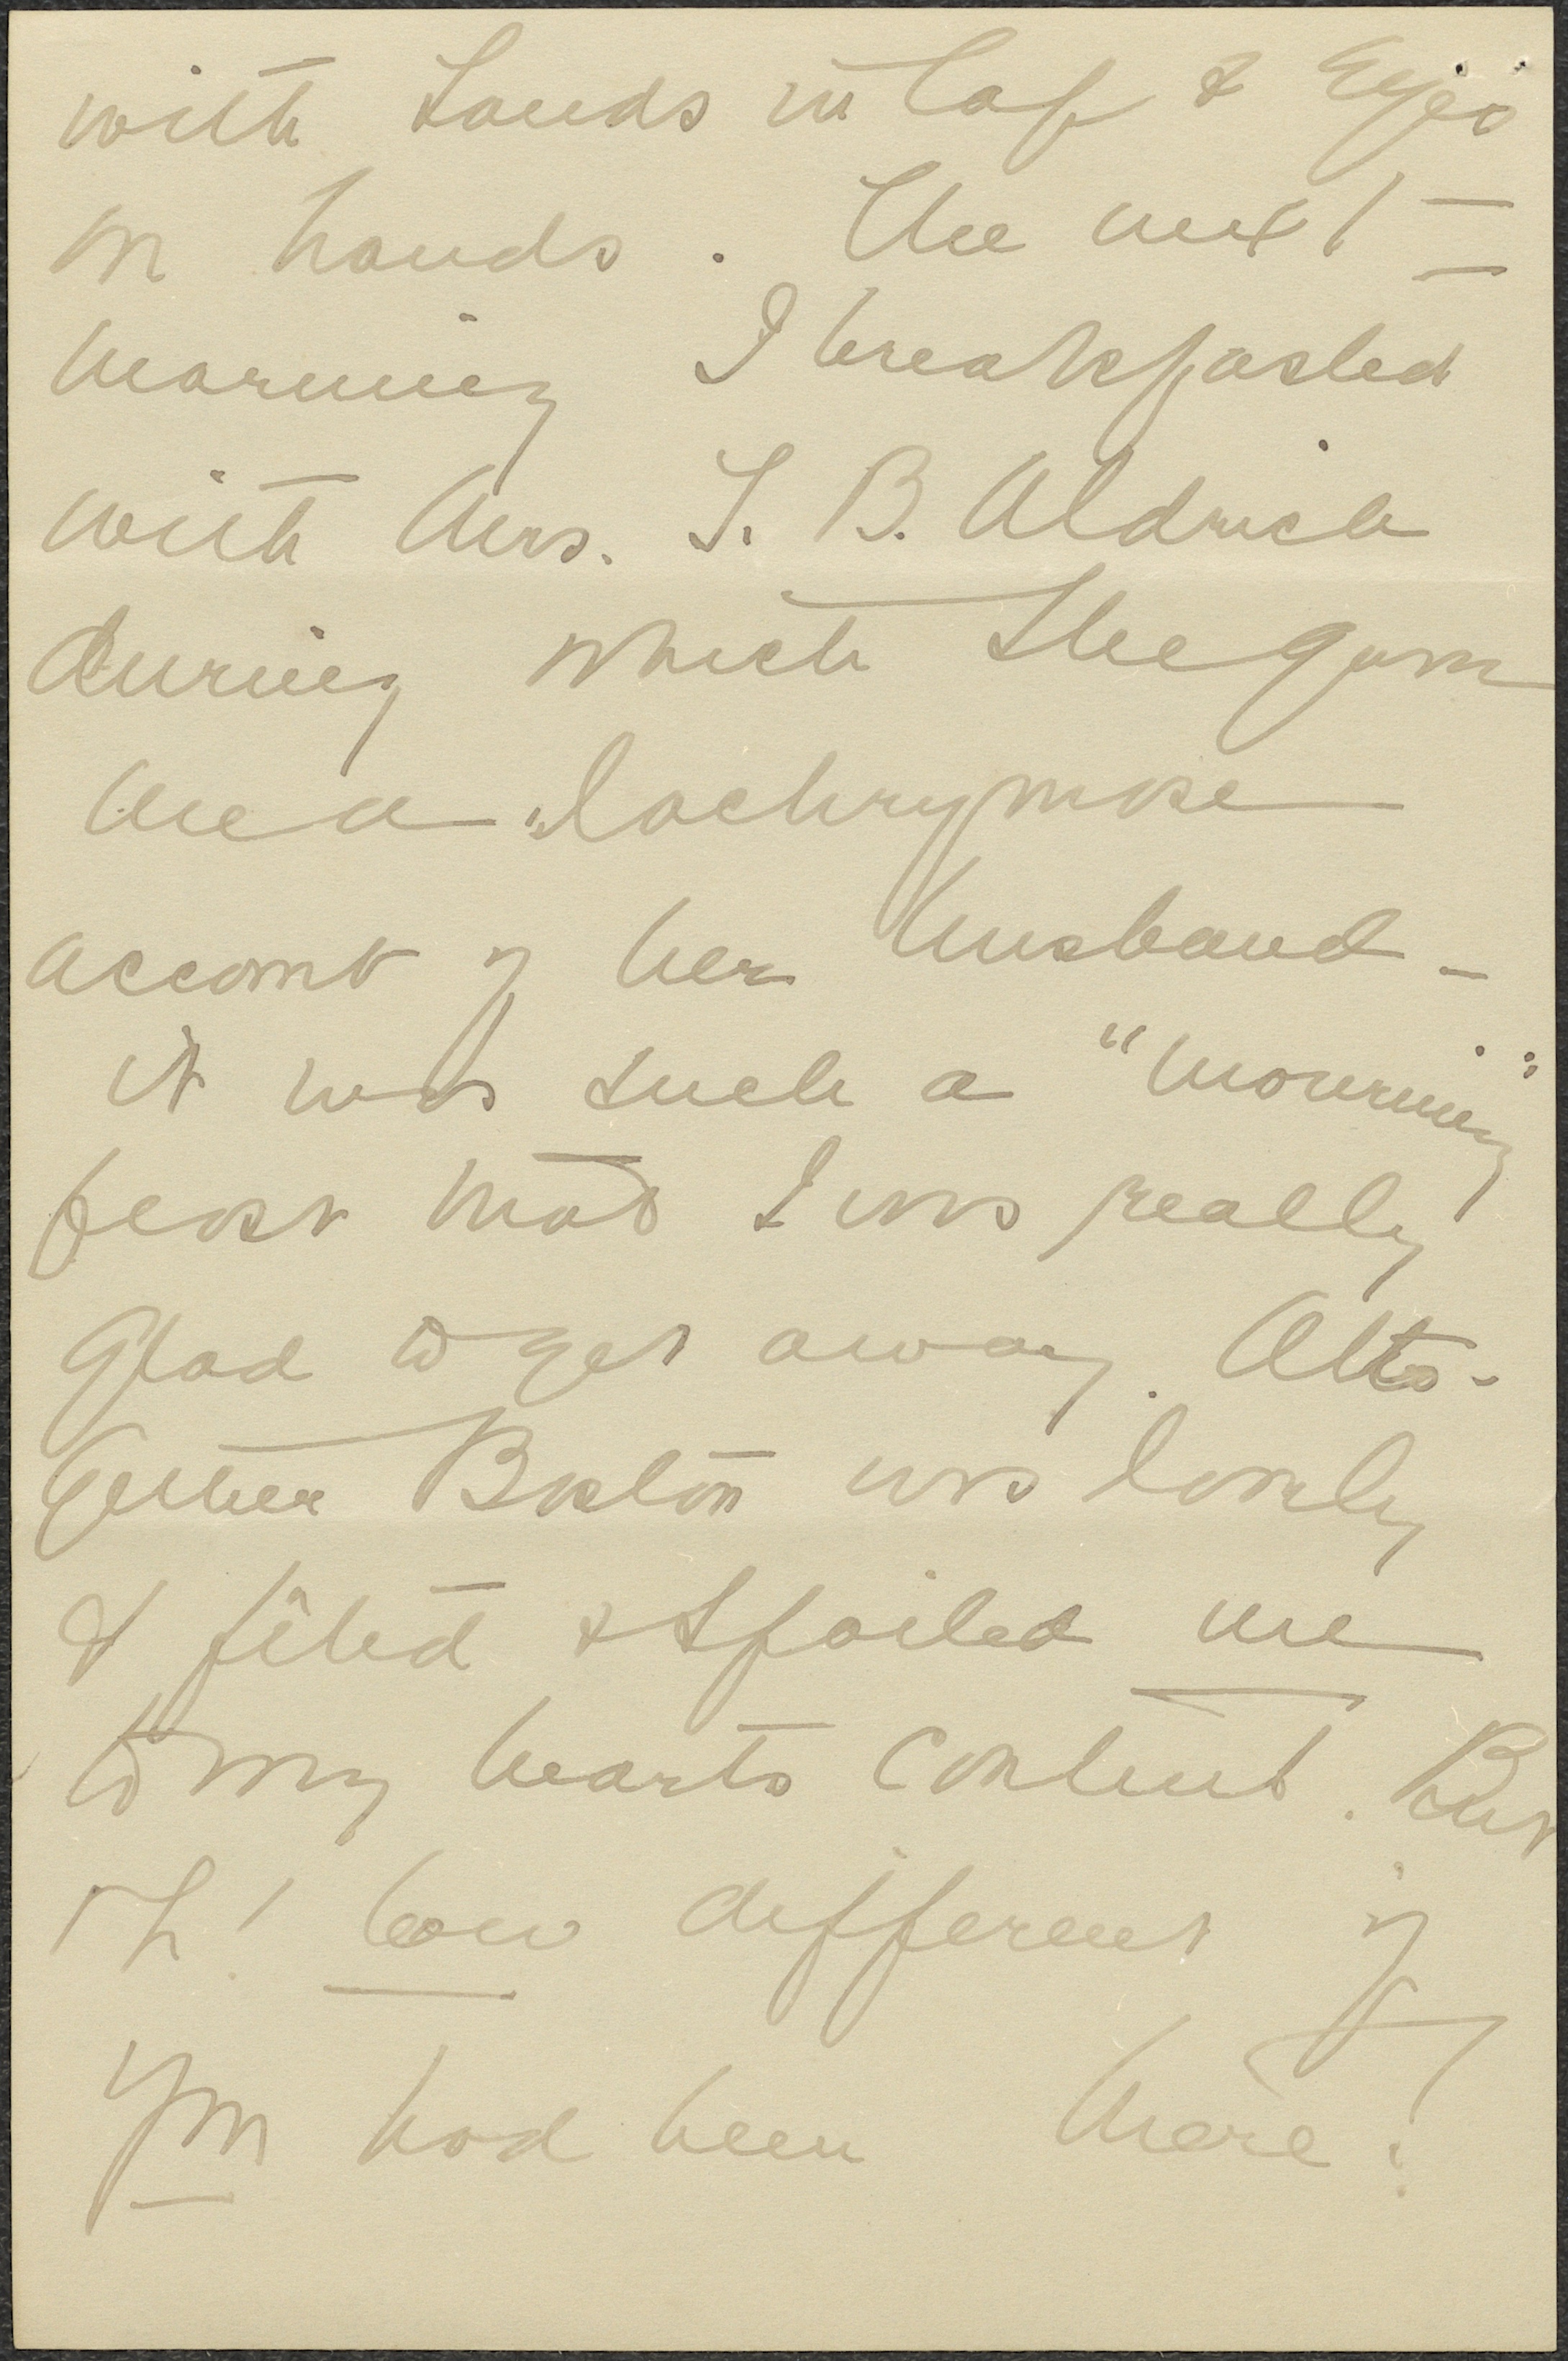 with hands in lap & Eyes
on hands. The next =
morning I breakfasted
with Mrs. T. B. Aldrich
during which She gave
me a lachrymose
account of her husband -
it was such a "mourning"
feast that I was really
glad to get away. Alto-
gether Boston was lovely
& fêted & spoiled me
to my hearts content. But
oh! how different if
you had been there!